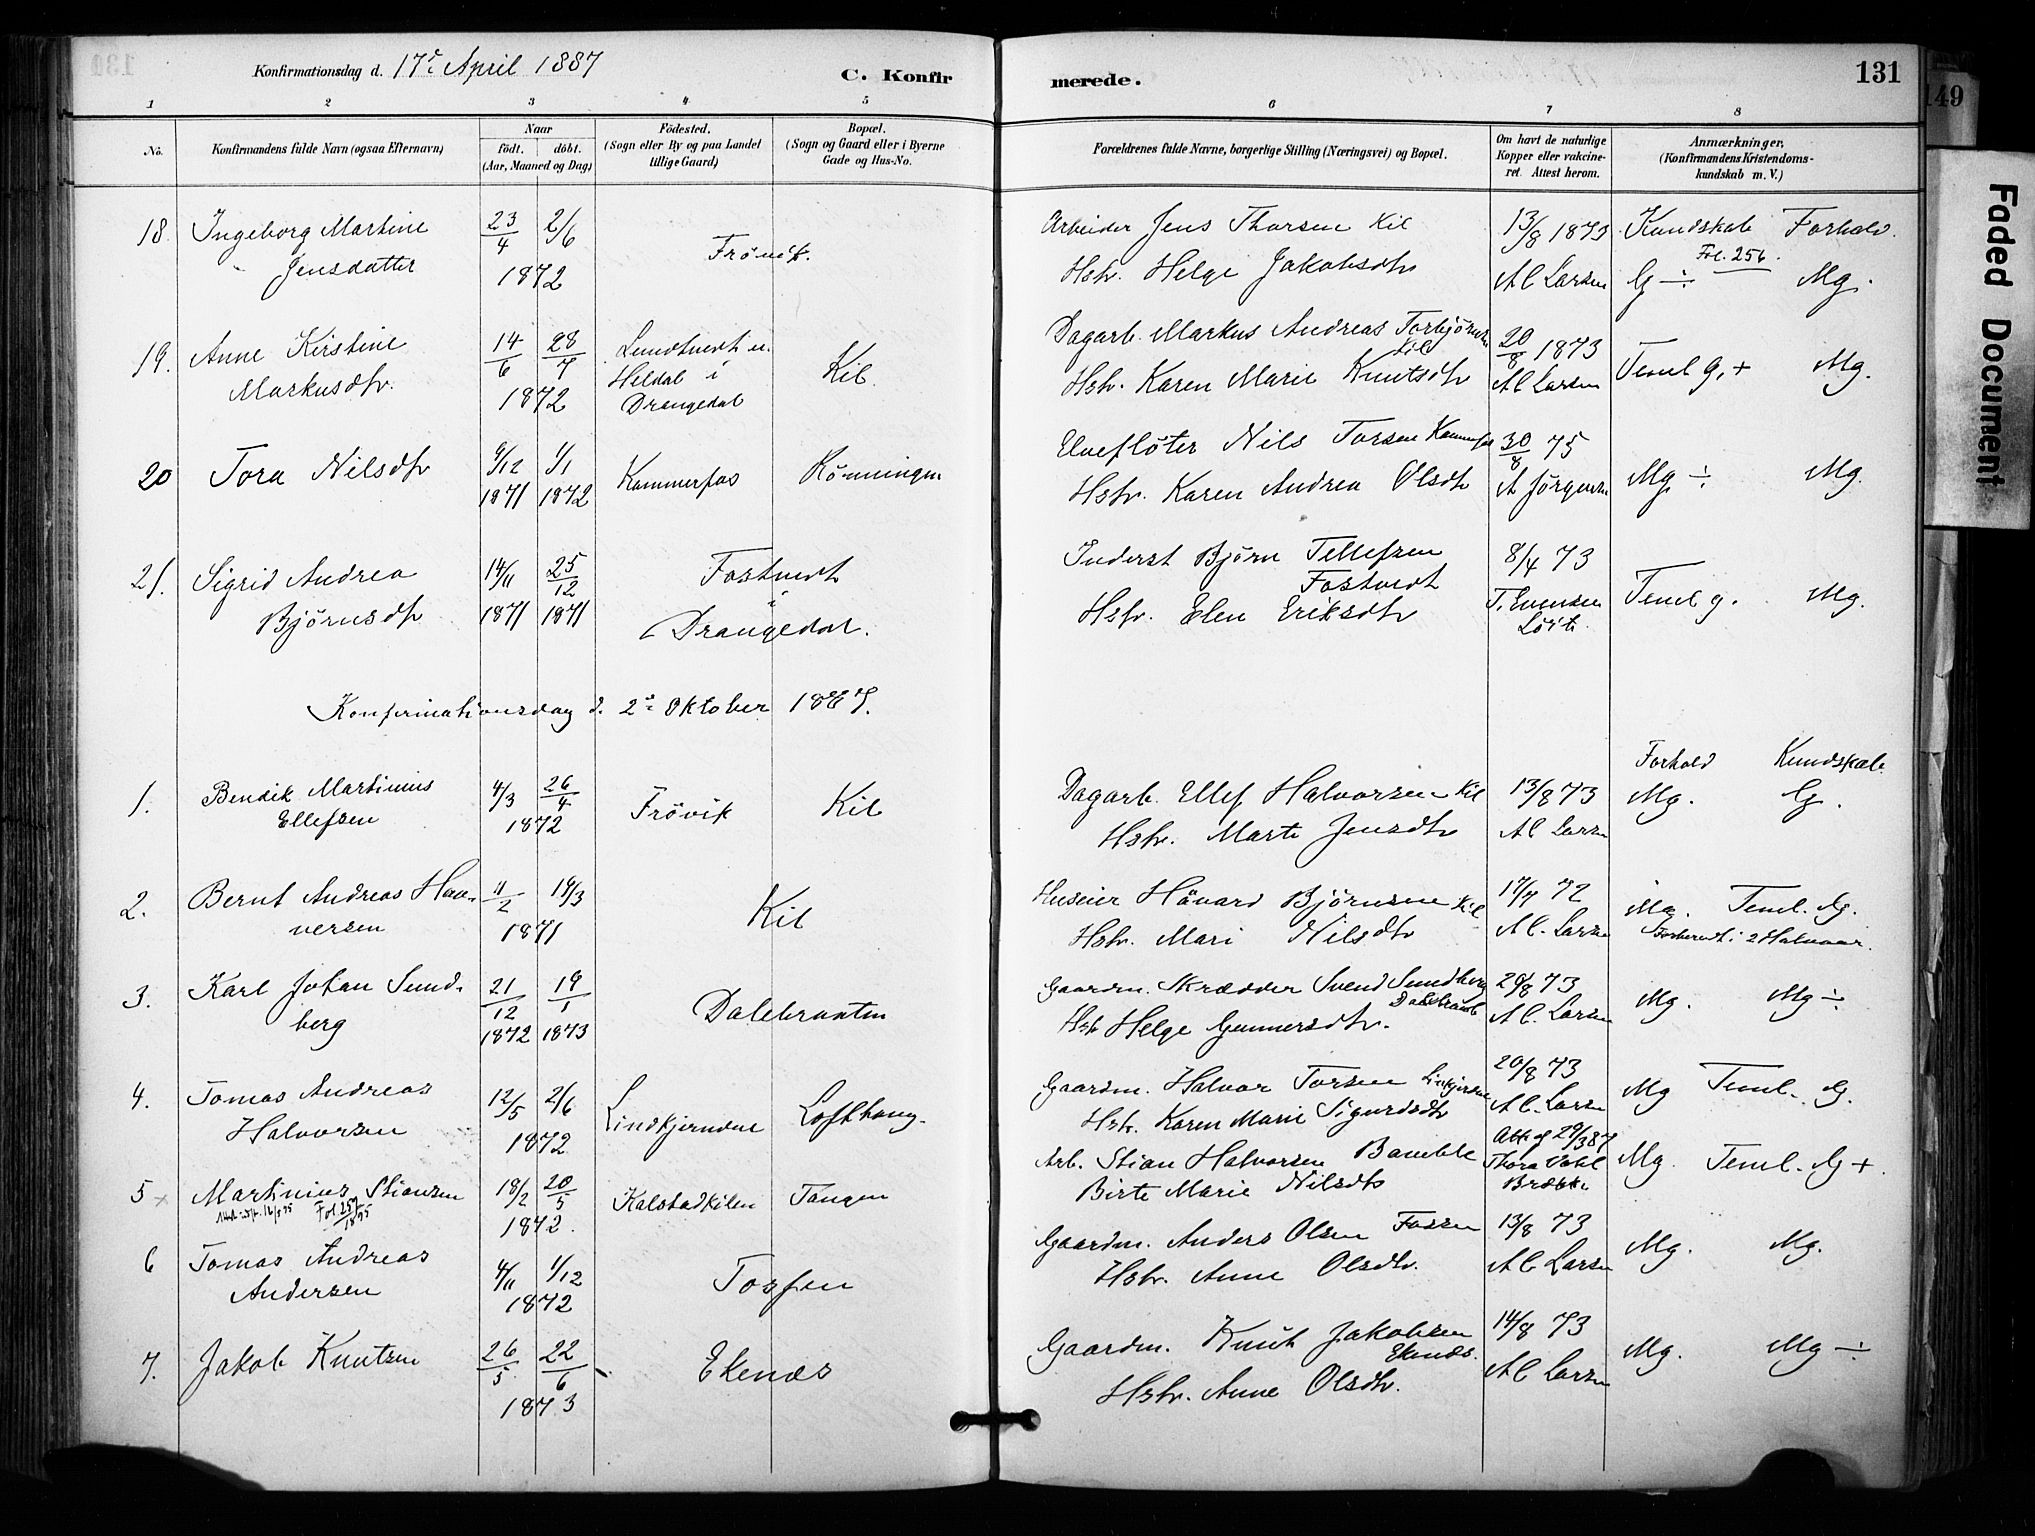 Konfirmationsdag d. 17de April 1887
C. Konfir
merede.
131
149
Faded Document
1 2 3 4 5 6 7 8
No.
Konfirmandens fulde Navn (ogsaa Efternavn)
Naar
födt. döbt.
(Aar, Maaned og Dag)
Födested.
(Sogn eller By og paa Landet tillige Gaard)
Bopæl.
(Sogn og Gaard eller i Byerne Gade og Hus-No.
Forældrenes fulde Navne, borgerlige Stilling (Næringsvei) og Bopæl.
Om havt de naturlige Kopper eller vakcineret. Attest herom.
Anmærkninger,
(Konfirmandens Kristendomskundskab m. V.)
18. Ingeborg Martine 23/4 2/6 Frövik. Arbeider Jens Thorsen Kil 13/8 1873 Kundskab Forhold.
Jensdatter 1872 Hstr. Helge Jakobsdtr A C Larsen G ÷ Fol. 256. Mg.
19. Anne Kirstine 14/6 28/7 Lundtvedt u. Kil. Dagarb. Markus Andreas Torbjörnsen Kil 20/8 1873 Teml G, + Mg.
Markusdtr. 1872 Heldal i Drangedal Hstr. Karen Marie Knutsdtr A C Larsen
20 Tora Nilsdtr 9/12 1/1 Kammerfos Rönningen Elveflöter Nils Torsen Kammerfos 30/8 75 Mg ÷ Mg.
1871 1872 Hstr. Karen Andrea Olsdtr A Jörgensen
21. Sigrid Andrea 14/11 25/12 Fostvedt i Drangedal. Inderst Björn Tellefsen Fostvedt 8/4 73 Teml g. Mg.
Björnsdtr 1871 1871 Hstr. Elen Eriksdtr T. Evensen
Konfirmationsdag d. 2de Oktober 1887.
Forhold Kundskab.
1. Bendik Martinius 4/3 26/4 Frövik Kil Dagarb. Ellef Halvorsen Kil 13/8 73 Mg. G.
Ellefsen 1872 Hstr. Marte Jensdtr A C Larsen
2. Bernt Andreas Haa- 11/2 19/3 Kil Huseier Håvard Björnsen Kil 17/7 72 Mg. Teml. G.
versen 1871 Hstr. Mari Nilsdtr A C. Larsen Forberedt i 2 Halvaar.
3. Karl Johan Sund- 21/12 19/1 Dalebraaten Gaardm. Skrædder Svend Sundberg 29/8 73 Mg. Mg ÷
berg 1872 1873 Hstr Helge Gunnersdtr. A C. Larsen
4. Tomas Andreas 12/5 2/6 Lindkjernden Lofthaug. Gaardm. Halvor Torsen 20/8 73 Mg Teml. G.
Halvorsen 1872 Hstr. Karen Marie Sigurdsdtr A C. Larsen
5 × Martinius Stiansen 18/2 20/5 Kalstadkilen Tangen Arb. Stian Halvorsen Bamble Att. af 29/3 87 Mg. Teml. G +.
1872. Birte Marie Nilsdtr Thora Dahl
6 Tomas Andreas 4/11 1/12 Fossen Gaardm. Anders Olsen Fossen 13/8 73 Mg. Mg.
Andersen 1872 Hstr. Anne Olsdtr. A C Larsen
7. Jakob Knutsen 26/5 22/6 Ekenæs Gaardm. Knut Jakobsen Ekenæs. 14/8 73 Mg. Mg ÷
1873 Hstr. Anne Olsdtr. A C Larsen